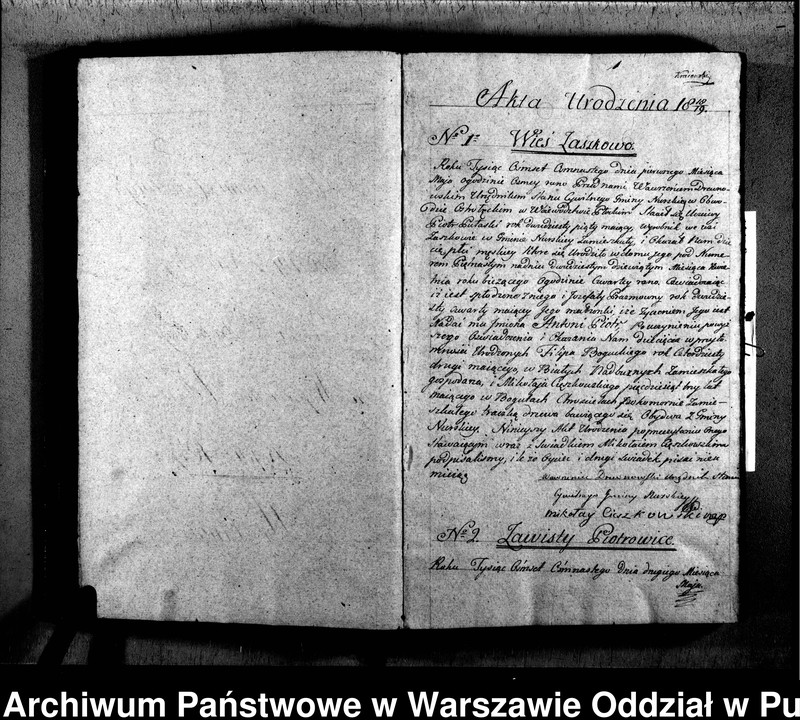 Akta Urodzenia 18 18/19.
No 1 Wieś Zaszkowo.
Roku Tysiąc Ośmset Ośmnastego dnia pierwszego Miesiąca
Maja o godzinie Osmey rano Przed nami Wawrzeńcem Drewno-
wskim Urzędnikiem Stanu Cywilnego Gminy Nurskiey w Obwo-
dzie Ostrołęckim w Wojewodztwie Płockim Stawił się
Piotr Pułaski rok dwudziesty piąty maiący wyrobnik we wsi
Zaszkowie w Gminie Nurskiey Zamieszkały i Okazał Nam dzie
cię płci męskiey które się Urodziło w domu jego pod Nume-
rem Piętnastym na dniu dwudziestym dziewiątym Miesiąca Kwie-
tnia roku bieżącego o Godzinie Czwartey rano, Oświadczaiąc
iż iest spłodzone z niego i Jozefaty Prazmowny rok dwudzie-
sty czwarty maiącey Jego małżonki, i że życzeniem Jego iest
Nadać mu Imiona Antoni Piotr, Po uczynieniu powyż
szego Oświadczenia i Okazaniu Nam Dziecięcia w przyto
mności Urodzonych Filipa Boguckiego rok Czterdziesty
drugi maiącego, w Białych Nadbużnych Zamieszkałego
gospodarza, i Mikołaia Cięszkowskiego pięćdziesiąt trzy lat
maiącego w Bogutach Chrosielach Zakomornie Zamie-
szkałego traczką drzewa bawiącego się Obydwa z Gminy
Nurskiey. Ninieyszy Akt Urodzenia po przeczytaniu onego
Stawaiącym wraz z Świadkiem Mikołaiem Cięszkowskim
podpisaliśmy, i że zaś Oyciec i drugi Świadek pisać nieu
mieią
Wawrzeniec Drewnowski Urzędnik Stanu
Cywilnego Gminy Nurskiey
Mikołay Cieszkowski
No 2. Zawisty Piotrowice.
Roku Tysiąc Ośmset Ośmnastego Dnia drugiego Miesiąca
Maja
Archiwum Państwowe w Warszawie Oddział w Pu